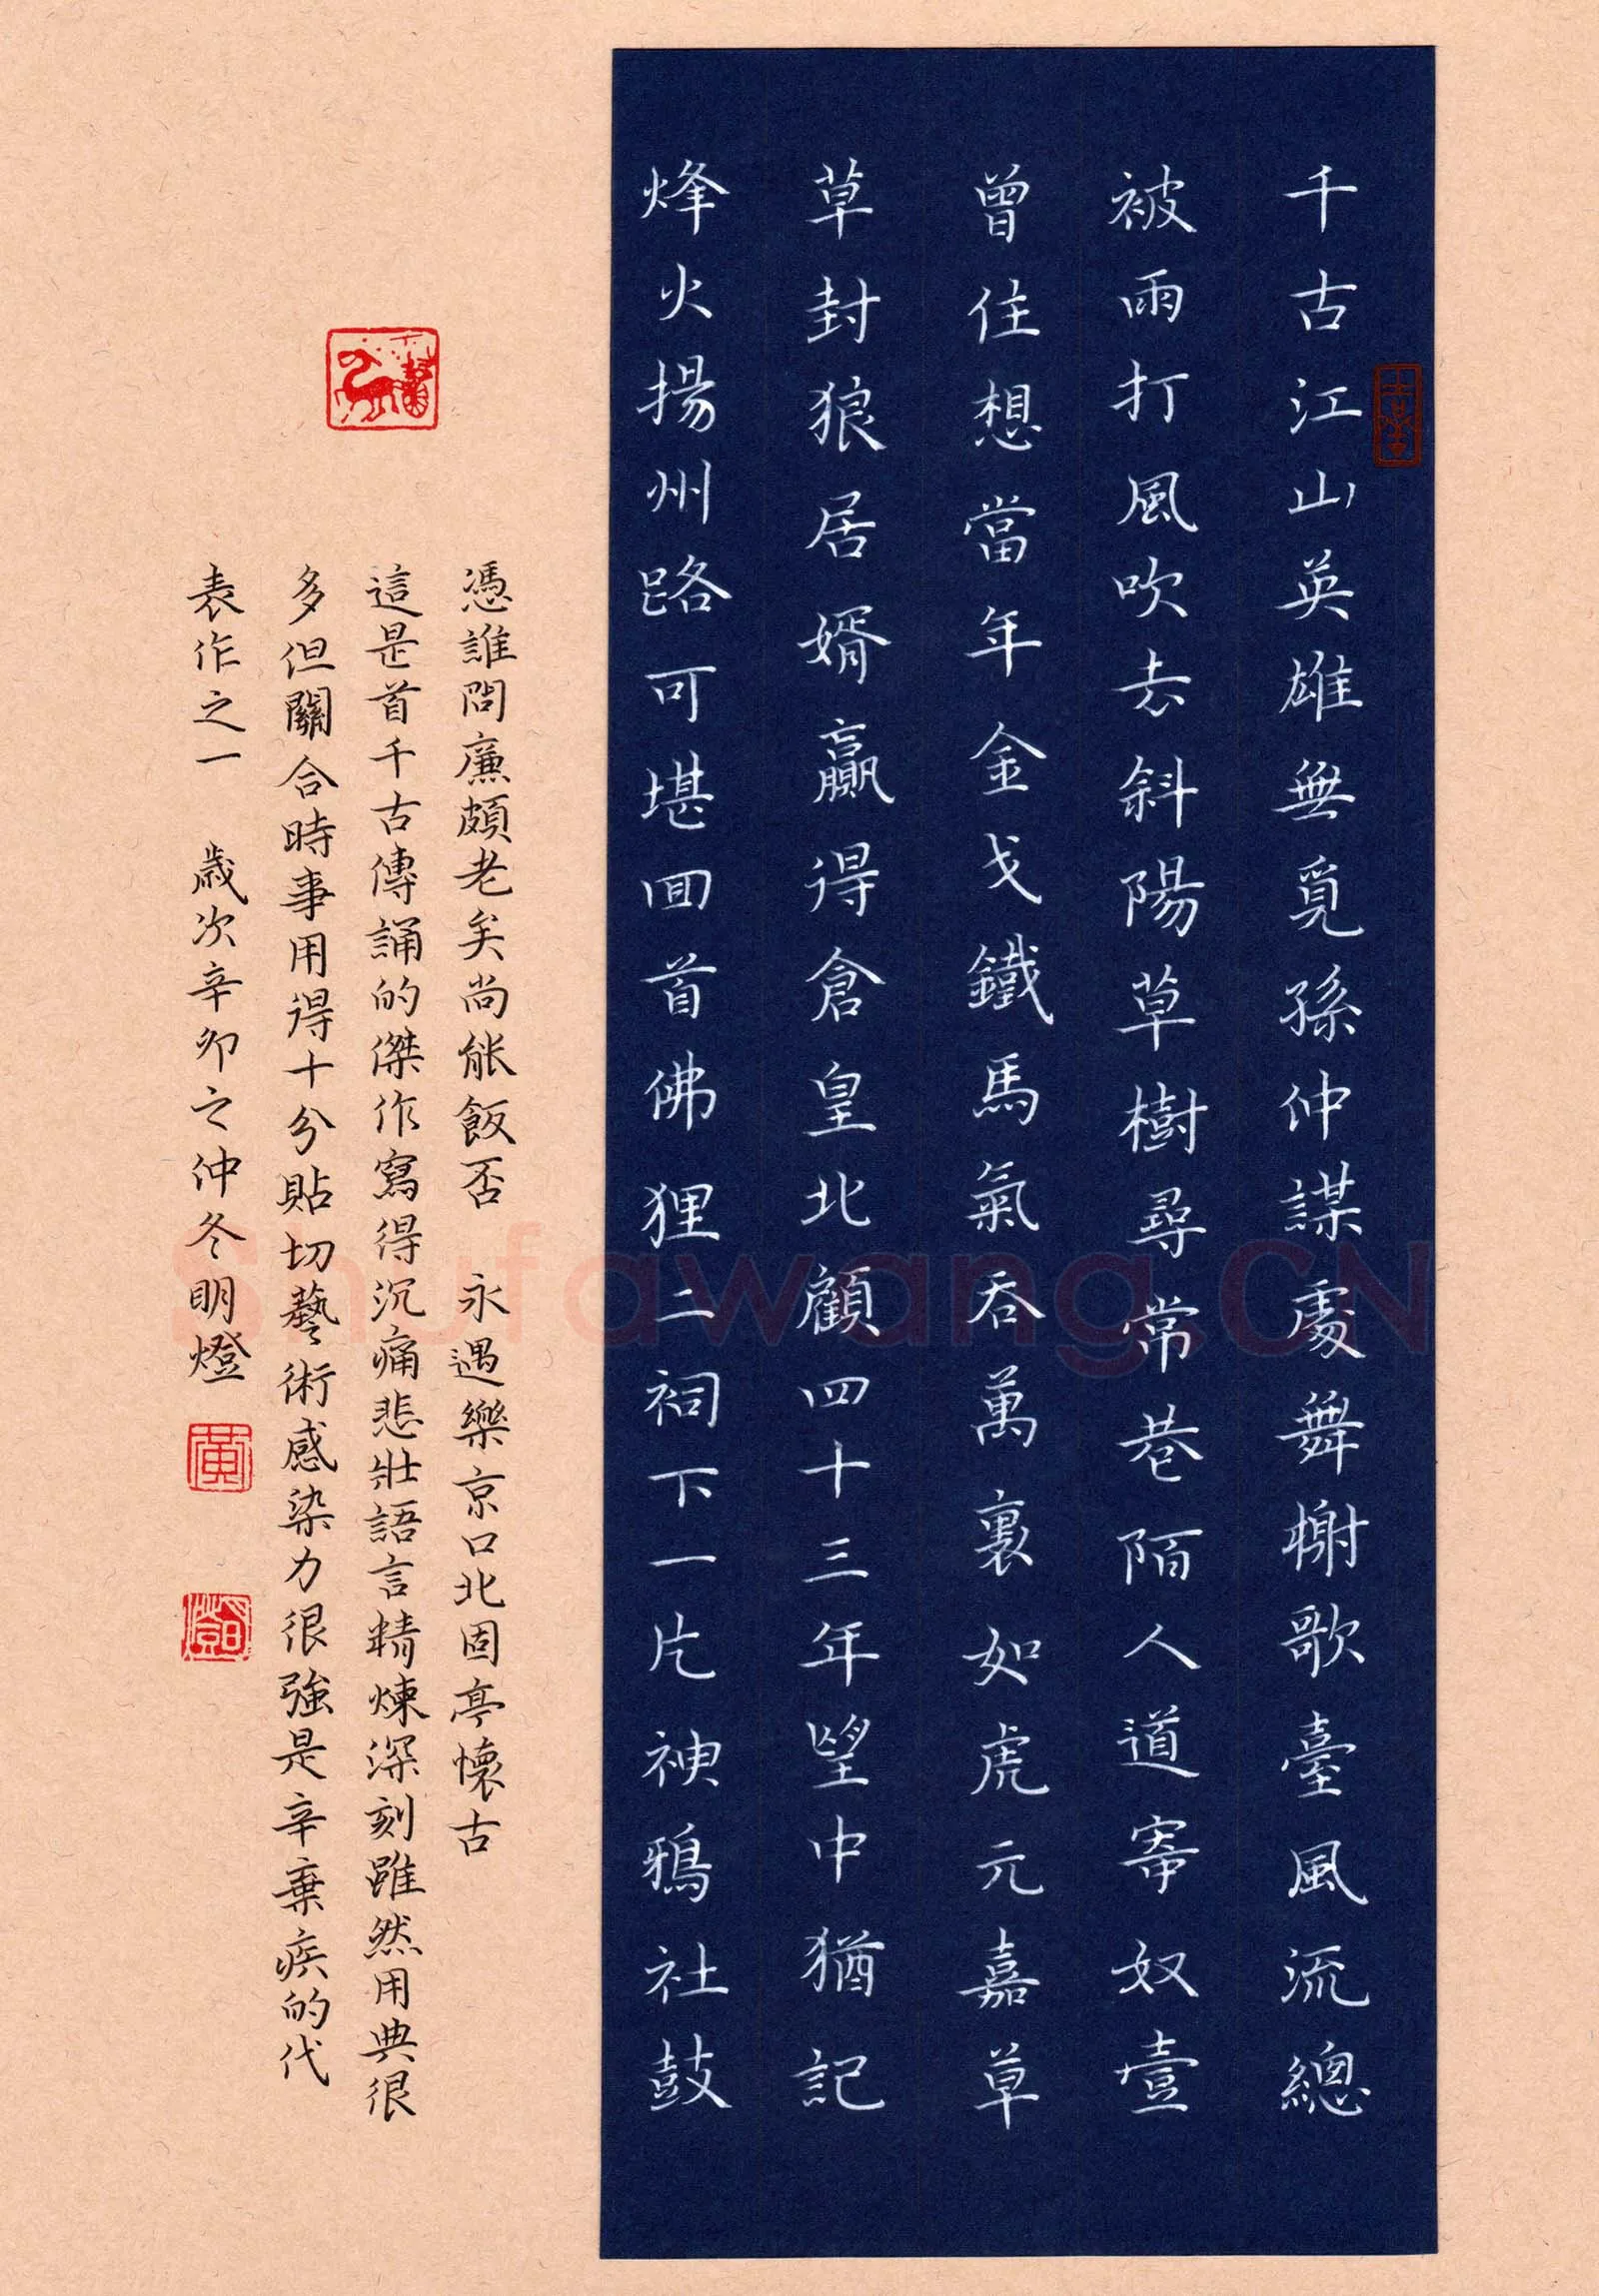 千古江山英雄無覓孫仲謀處舞榭歌臺風流總
被雨打風吹去斜陽草樹尋常巷陌人道寄奴壹
曾住想當年金戈鐵馬氣吞萬裏如虎元嘉草
草封狼居婿贏得倉皇北顧四十三年望中猶記
烽火揚州路可堪回首佛狸二祠下一片神鴉社鼓
憑誰問廉頗老矣尚能飯否 永遇樂京口北固亭懷古
這是首千古傳誦的傑作寫得沉痛悲壯語言精煉深刻雖然用典很
多但關合時事用得十分貼切藝術感染力很強是辛棄疾的代
表作之一 歲次辛卯之仲冬明燈
黃
明燈
Shufawang.CN